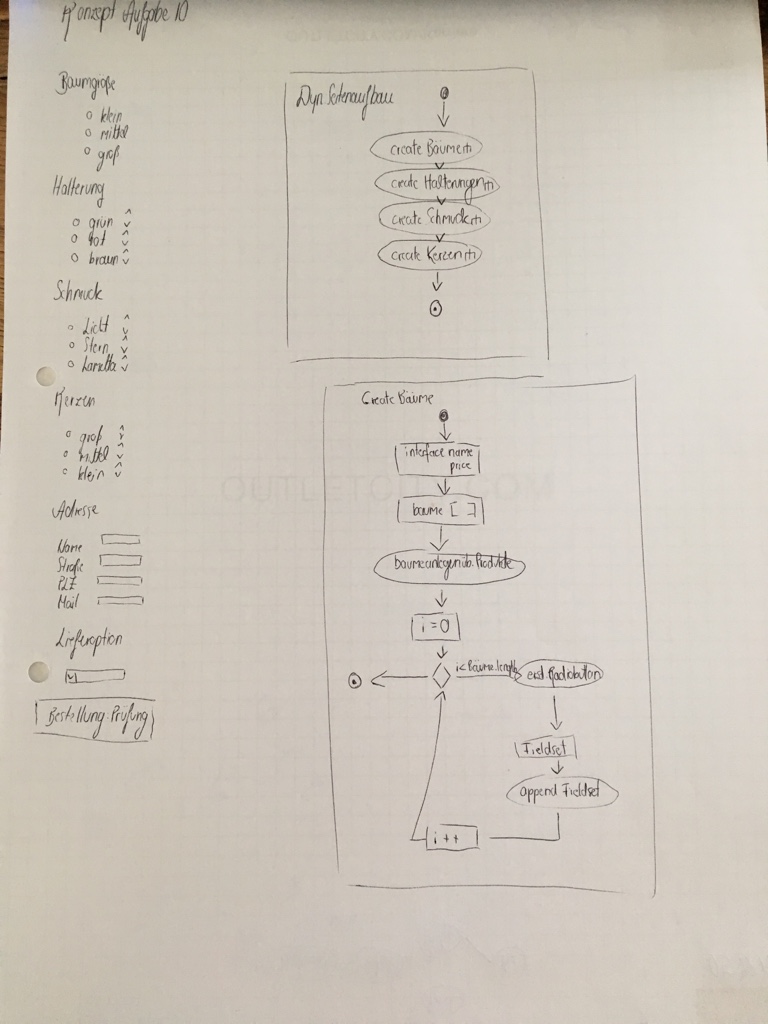 Konzept Aufgabe 10
Baumgröße
klein
mittel
groß
Halterung
grün
rot
braun
Schmuck
Licht
Stern
Lametta
Kerzen
groß
mittel
klein
Adresse
Name
Straße
PLZ
Mail
Lieferoption
Bestellung Prüfung
Dyn. Seitenaufbau
create Bäume
create Halterungen
create Schmuck
create Kerzen
Create Bäume
interface name
price
baume [ ]
i = 0
i < Bäume.length
erst. Radiobutton
Fieldset
append Fieldset
i ++
OUTLETCITY.COM